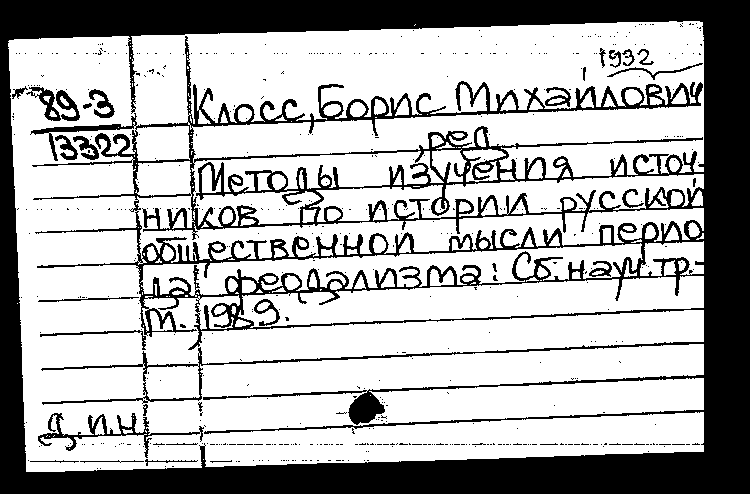 1932
89-3 Клосс, Борис Михайлович
13322 , ред.
Методы изучения источ-
ников по истории русской
общественной мысли перио
да феодализма: Сб. науч. тр.-
М., 1989.
д.и.н